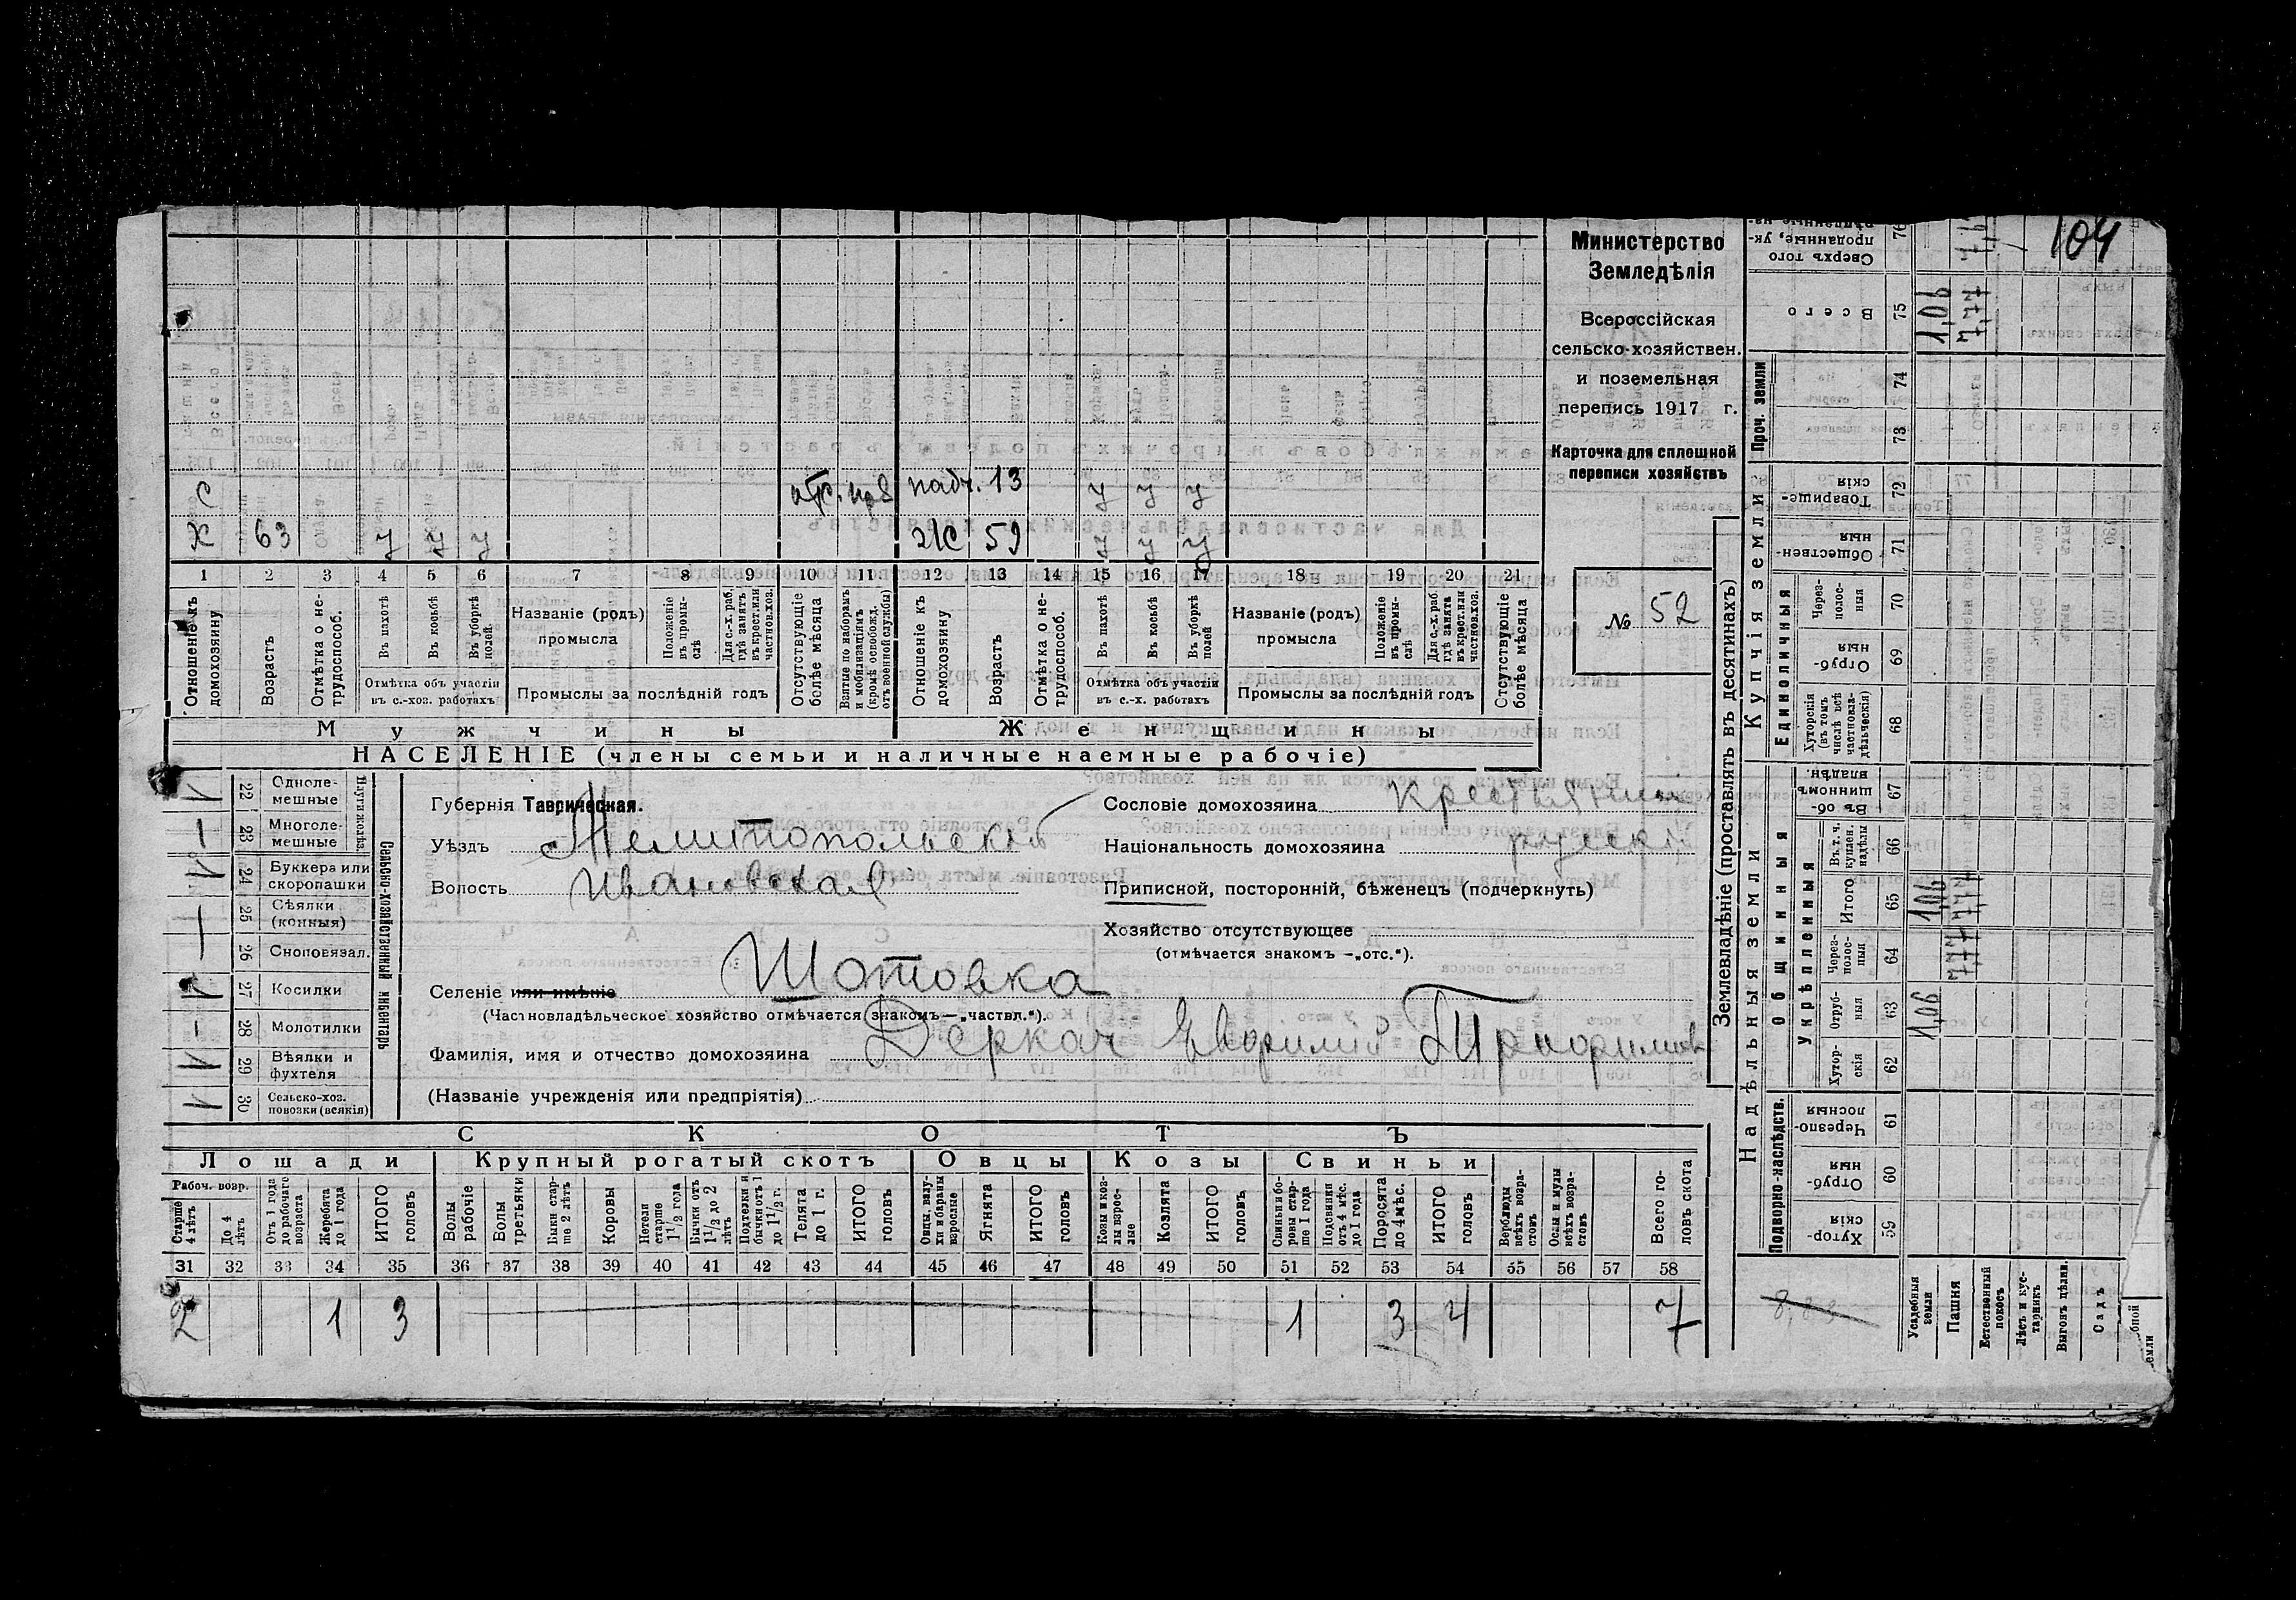 104
Министерство
Земледѣлія
Всероссійская
сельско-хозяйствен.
и поземельная
перепись 1917 г.
Карточка для сплошной
переписи хозяйствъ
№ 52
С отс. наб падч. 13 у у у
Х 63 у у у 59 у у у
1 2 3 4 5 6 7 8 9 10 11 12 13 14 15 16 17 18 19 20 21
Отношеніе къ домохозяину
Возрастъ
Отмѣтка о не-трудоспособ.
Въ пахотѣ
Въ косьбѣ
Въ уборкѣ полей.
Отмѣтка объ участіи
въ с.-хоз. работахъ
Названіе (родъ)
промысла
Положеніе въ промы-слѣ
Для с.-х. раб. гдѣ занятъ въ крест. или частновл. хоз.
Промыслы за послѣдній годъ
Отсутствующіе болѣе мѣсяца
Взятые по наборамъ и мобилизаціямъ (кромѣ освобожд. отъ военной службы)
Отношеніе къ домохозяину
Возрастъ
Отмѣтка о не-трудоспособ.
Въ пахотѣ
Въ косьбѣ
Въ уборкѣ полей
Отмѣтка объ участіи
въ с.-х. работахъ
Названіе (родъ)
промысла
Положеніе въ промы-слѣ
Для с.-х. раб. гдѣ занята въ крест. или частновл. хоз.
Промыслы за послѣдній годъ
Отсутствующіе болѣе мѣсяца
Мужчины Женщины
НАСЕЛЕНІЕ (члены семьи и наличные наемные рабочіе)
Сельско-хозяйственный инвентарь
1 22 Одноле-мешные
— 23 Многоле-мешные
1 24 Буккера или скоропашки
— 25 Сѣялки (конныя)
26 Сноповязал.
1 27 Косилки
- 28 Молотилки
1 29 Вѣялки и фухтеля
1 30 Сельско-хоз. повозки (всякія)
Губернія Таврическая.
Уѣздъ Мелитопольскій
Волость Ивановская
Сословіе домохозяина крестьянин
Національность домохозяина русскій
Приписной, посторонній, бѣженецъ (подчеркнуть)
Хозяйство отсутствующее
(отмѣчается знакомъ —„отс.“).
Селеніе или имѣніе Шотовка
(Частновладѣльческое хозяйство отмѣчается знакомъ—„частвл.“).
Фамилія, имя и отчество домохозяина Деркач
(Названіе учрежденія или предпріятія)
СКОТЪ
Лошади Крупный рогатый скотъ Овцы Козы Свиньи
Рабоч. возр.
Старше 4 лѣтъ
До 4 лѣтъ
Отъ 1 года до рабочаго возраста
Жеребята до 1 года
ИТОГО головъ
Волы рабочіе
Волы третьяки
Быки стар-ше 2 лѣтъ
Коровы
Нетели старше 1 1/2 года
Бычки отъ 1 1/2 до 2 лѣтъ
Подтелки и бычки отъ 1 до 1 1/2 г.
Телята до 1 г.
ИТОГО головъ
Овцы, валу-хи и бараны взрослые
Ягнята
ИТОГО головъ
Козы и коз-лы взрос-лые
Козлята
ИТОГО головъ
Свиньи и бо-ровы стар-ше 1 года
Подсвинки отъ 4 мѣс. до 1 года
Поросята до 4 мѣс.
ИТОГО головъ
Верблюды всѣхъ возра-стовъ
Ослы и мулы всѣхъ возра-стовъ
Всего го-ловъ скота
31 32 33 34 35 36 37 38 39 40 41 42 43 44 45 46 47 48 49 50 51 52 53 54 55 56 57 58
2 1 3 1 3 4 7
Землевладѣніе (проставлять въ десятинахъ)
Надѣльныя земли
Купчія земли
Проч. земли
Подворно-наслѣдств.
Общинныя
Укрѣпленныя
Единоличныя
Сверхъ того проданные, ук- 76
Всего 75 1,06 7,77
74
73
Товарище-скія 72
Обществен-ныя 71
Через-полос-ныя 70
Отруб-ныя 69
Хуторскія (въ томъ числѣ всѣ частновла-дѣльческія) 68
Въ об-щинномъ владѣн. 67
Въ т. ч. куплен. надѣлы 66
Итого 65 1,06 7,77
Через-полос-ныя 64 7,77
Отруб-ныя 63 1,06
Хутор-скія 62
Черезпо-лосныя 61
Отруб-ныя 60
Хутор-скія 59
8,83
Усадебныя земли
Пашня
Естественный покосъ
Лѣсъ и кус-тарникъ
Выгонъ цѣлин.
Садъ